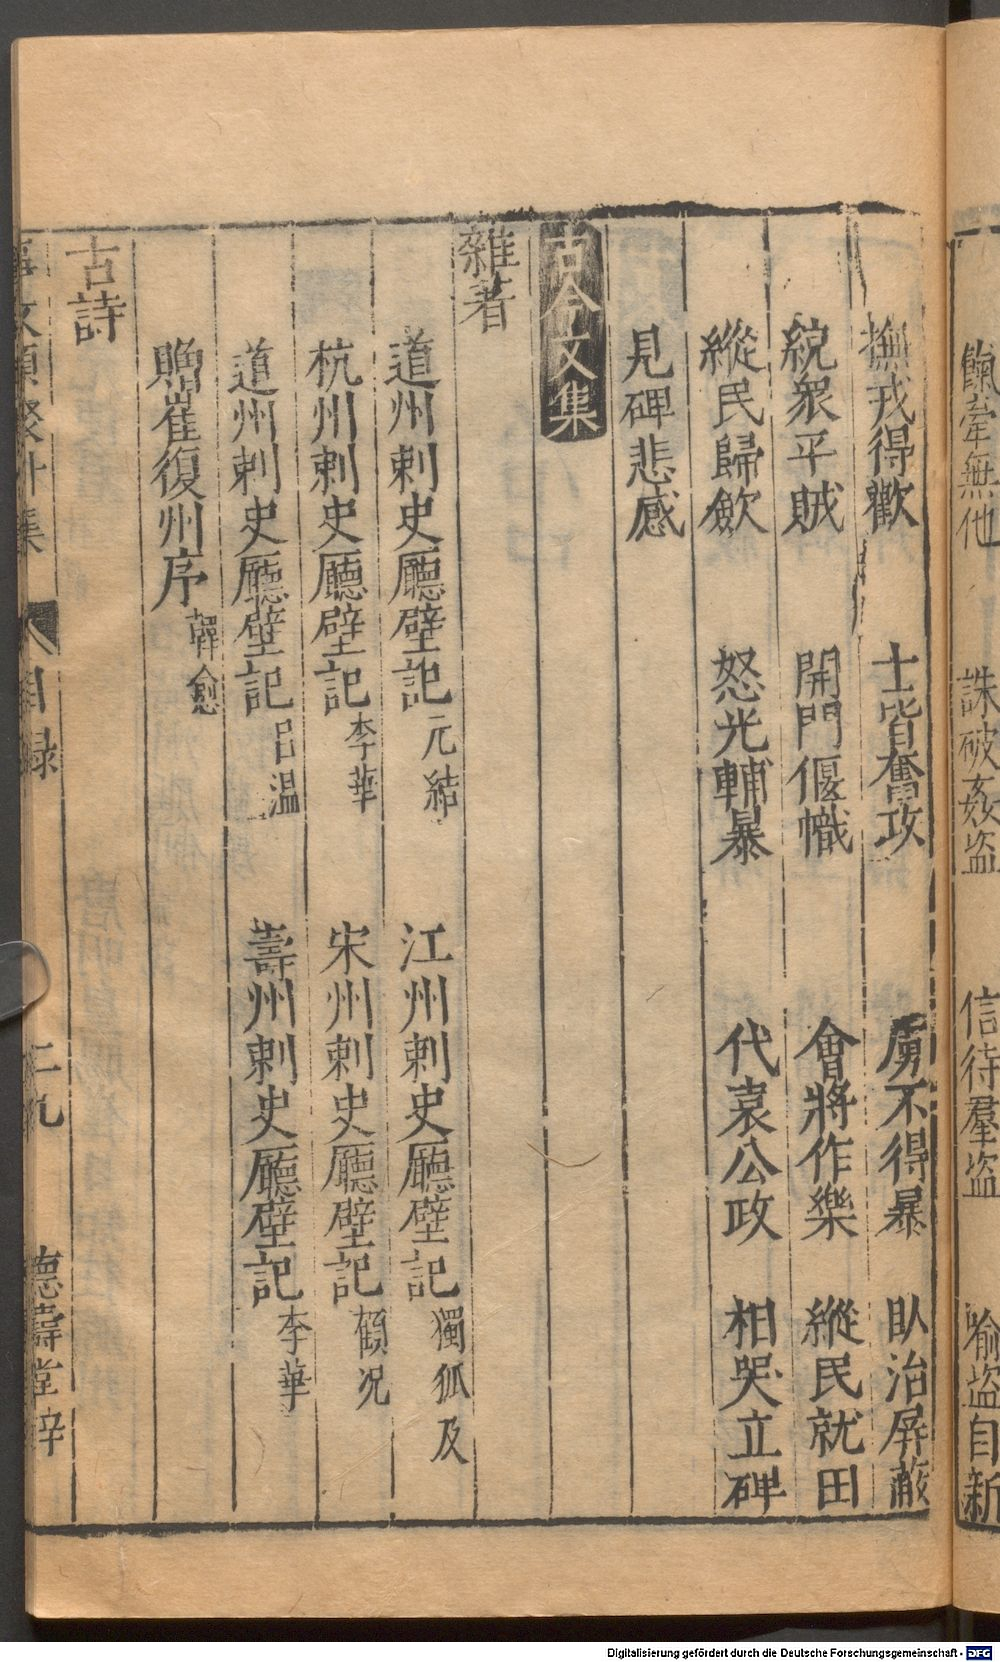 餼牽無他　誅破姦盜　信待羣盜　喻盜自新
撫戎得歡　士皆奮攻　虜不得暴　臥治屏蔽
統衆平賊　開門偃幟　會將作樂　縱民就田
縱民歸斂　怒光輔暴　代袁公政　相哭立碑
見碑悲感
古今文集
雜著
道州刺史廳壁記 元結　江州刺史廳壁記 獨狐及
杭州刺史廳壁記 李華　宋州刺史廳壁記 顧况
道州刺史廳壁記 呂溫　壽州刺史廳壁記 李華
贈崔復州序 韓愈
古詩
事文類聚外集　目録　二九　德壽堂梓
Digitalisierung gefördert durch die Deutsche Forschungsgemeinschaft - DFG